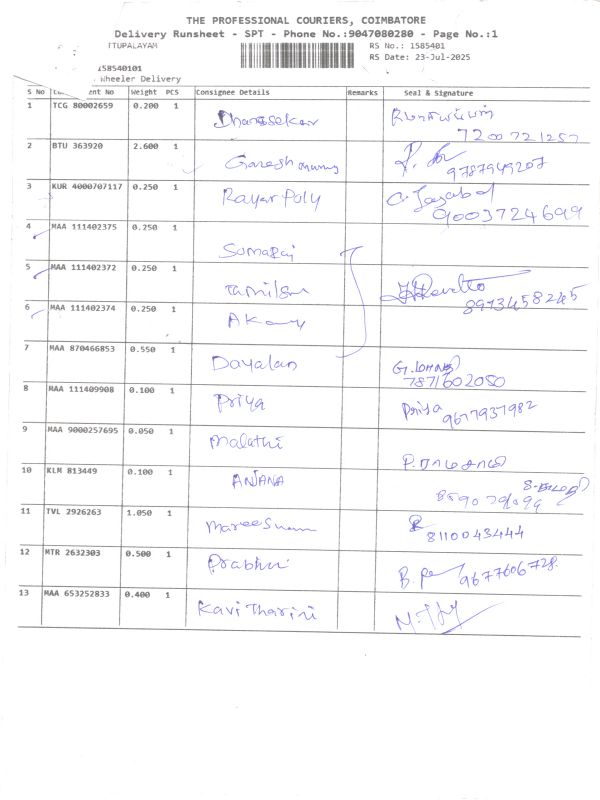 THE PROFESSIONAL COURIERS, COIMBATORE
Delivery Runsheet - SPT - Phone No.:9047080280 - Page No.:1
TTUPALAYAM
RS No.: 1585401
RS Date: 23-Jul-2025
158540101
Wheeler Delivery
S No ent No Weight PCS Consignee Details Remarks Seal & Signature
1 TCG 80002659 0.200 1 Dhanasekar
7200721257
2 BTU 363920 2.600 1 Ganesh
9787949207
3 KUR 4000707117 0.250 1 Rayar Poly
9003724699
4 MAA 111402375 0.250 1 Sumaraj
5 MAA 111402372 0.250 1
8973458245
6 MAA 111402374 0.250 1
7 MAA 870466853 0.550 1 Dayalan
7871602080
8 RAA 111409908 0.100 1 Priya Priya 9677937982
9 MAA 9000257695 0.050 1 Malathi
10 KLM 813449 0.100 1 ANJANA
11 TVL 2926263 1.050 1 8110043444
12 MTR 2632303 0.500 1 Prabhu 9677606728
13 MAA 653252833 0.400 1 Kavi Tharini